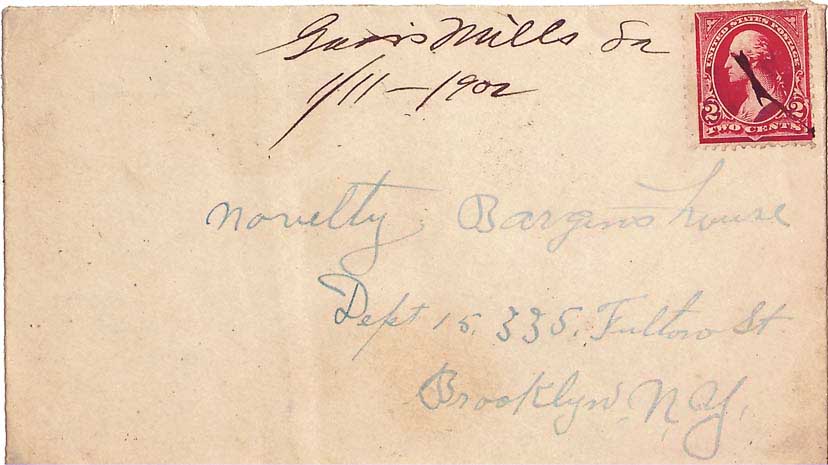 Mills
1/11-1902
UNITED STATES POSTAGE
2 2
TWO CENTS
Novelty Bargins house
Dept 15. 335. Fulton St
Brooklyn N.Y.